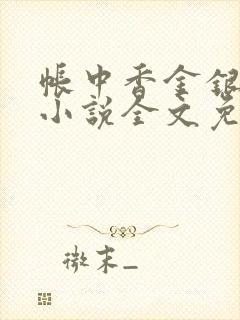 帐中香金银
小说全文免
微末_